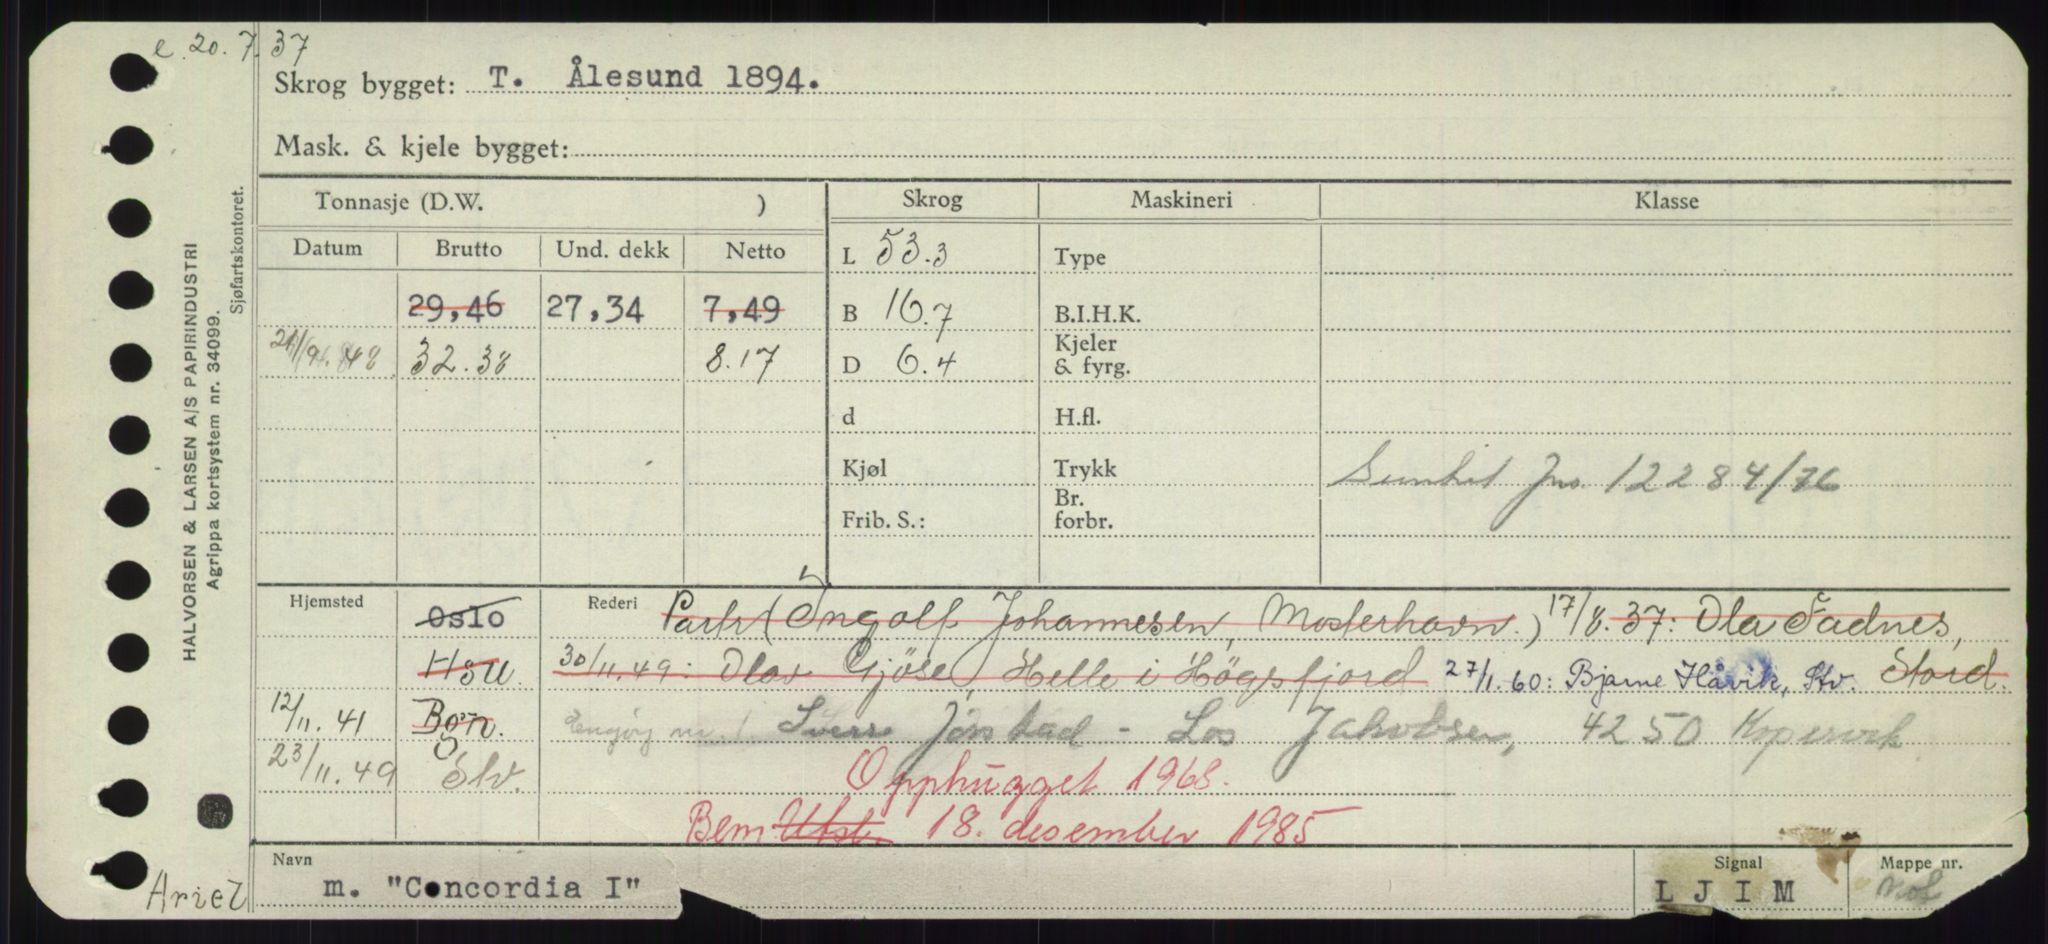 e. 20.7.37
Skrog bygget: T. Ålesund 1894.
Mask. & kjele bygget:
Tonnasje (D.W. )
Skrog
Maskineri
Klasse
Datum
Brutto
Und. dekk
Netto
L 53.3
Type
29,46
27,34
7,49
B 16.7
B.I.H.K.
48
32.38
8.17
D 6.4
Kjeler
& fyrg.
d
H.fl.
Kjøl
Trykk
Jno. 12284/76
Br.
Frib. S.:
forbr.
Hjemsted
Oslo
Rederi
Partr (Ingolf Johannesen, Mosterhavn.) 17/8.37: Ola Fadnes,
Hsu.
30/11.49: Olav Gjöse, Helle i Högsfjord 27/1.60: Bjarne Håvik, Stv. Stord.
12/11.41
Bgn.
Sverre Jonstad - Los Jakobsen, 4250 Kopervik
23/11.49
Stv.
Opphugget 1968.
Bem Utst. 18. desember 1985
Navn
m. "Concordia I"
Signal
L J I M
Mappe nr.
Ariel
HALVORSEN & LARSEN A/S PAPIRINDUSTRI
Agrippa kortsystem nr. 34099.
Sjøfartskontoret.